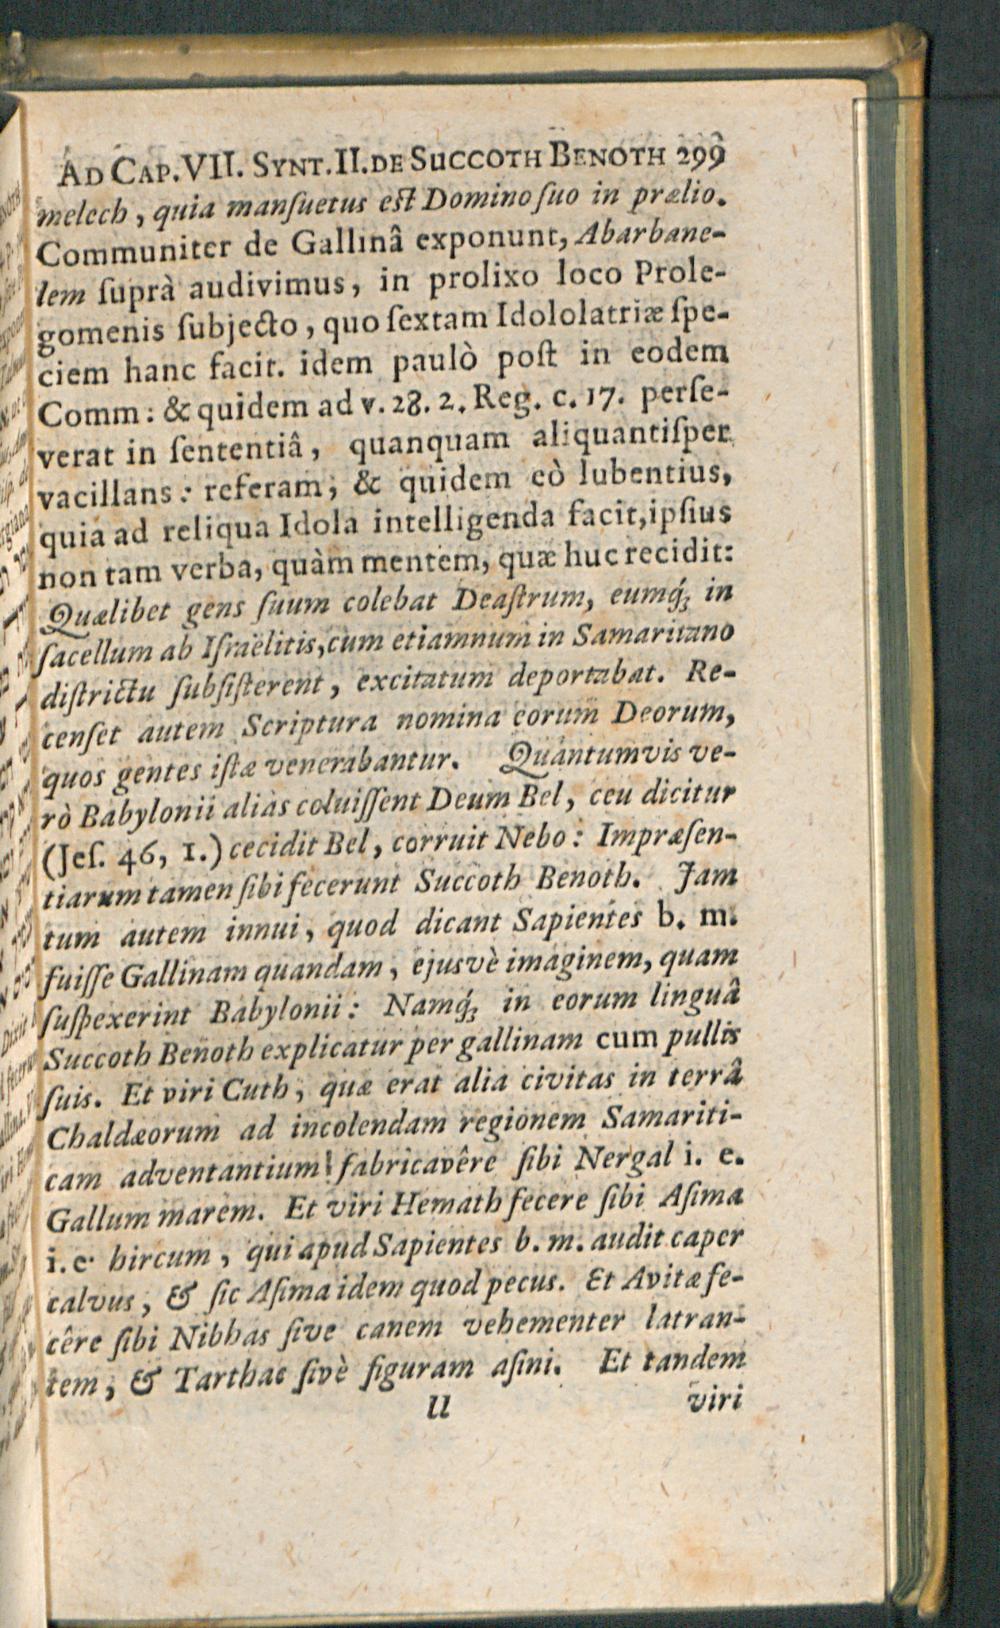 AD CAP.VII. SYNT.II.DE SUCCOTH BENOTH 299
melech, quia manſuetus eſt Domino ſuo in prælio.
Communiter de Gallinâ exponunt, Abarbane-
lem ſuprà audivimus, in prolixo loco Prole-
gomenis ſubjecto, quo ſextam Idololatriæ ſpe-
ciem hanc facit. idem paulò poſt in eodem
Comm: & quidem ad v. 28. 2. Reg. c. 17. perſe-
verat in ſententiâ, quanquam aliquantiſper
vacillans: referam, & quidem eò lubentius,
quia ad reliqua Idola intelligenda facit, ipſius
non tam verba, quàm mentem, quæ huc recidit:
Quælibet gens ſuum colebat Deaſtrum, eumq́ꝫ in
ſacellum ab Iſraëlitis, cum etiamnum in Samaritano
diſtrictu ſubſiſterent, excitatum deportabat. Re-
cenſet autem Scriptura nomina eorum Deorum,
quos gentes iſtæ venerabantur. Quantumvis ve-
rò Babylonii alias coluiſſent Deum Bel, ceu dicitur
(Jeſ. 46, 1.) cecidit Bel, corruit Nebo: Impræſen-
tiarum tamen ſibi fecerunt Succoth Benoth. Jam
tum autem innui, quod dicant Sapientes b. m.
fuiſſe Gallinam quandam, ejusvè imaginem, quam
ſuſpexerint Babylonii: Namq́ꝫ in eorum linguâ
Succoth Benoth explicatur per gallinam cum pullis
ſuis. Et viri Cuth, quæ erat alia civitas in terrâ
Chaldæorum ad incolendam regionem Samariti-
cam adventantium! fabricavêre ſibi Nergal i. e.
Gallum marem. Et viri Hemath fecere ſibi Aſima
i. e. hircum, qui apud Sapientes b. m. audit caper
calvus, & ſic Aſima idem quod pecus. Et Avitæ fe-
cêre ſibi Nibhas ſive canem vehementer latran-
tem, & Tarthac ſivè figuram aſini. Et tandem
U viri